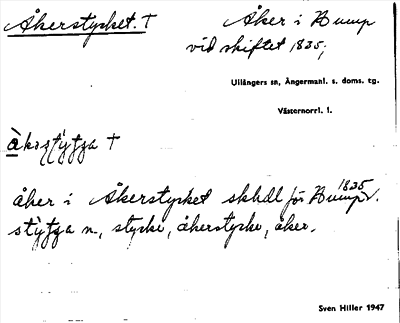 Åkerstycket. †
Åker i Bump
vid skiftet 1835;
Ullångers sn, Ångermanl. s. doms. tg.
Västernorrl. l.
åker i Åkerstycket skhdl för Bump 1835.
n., stycke, åkerstycke, åker.
Sven Hiller 1947